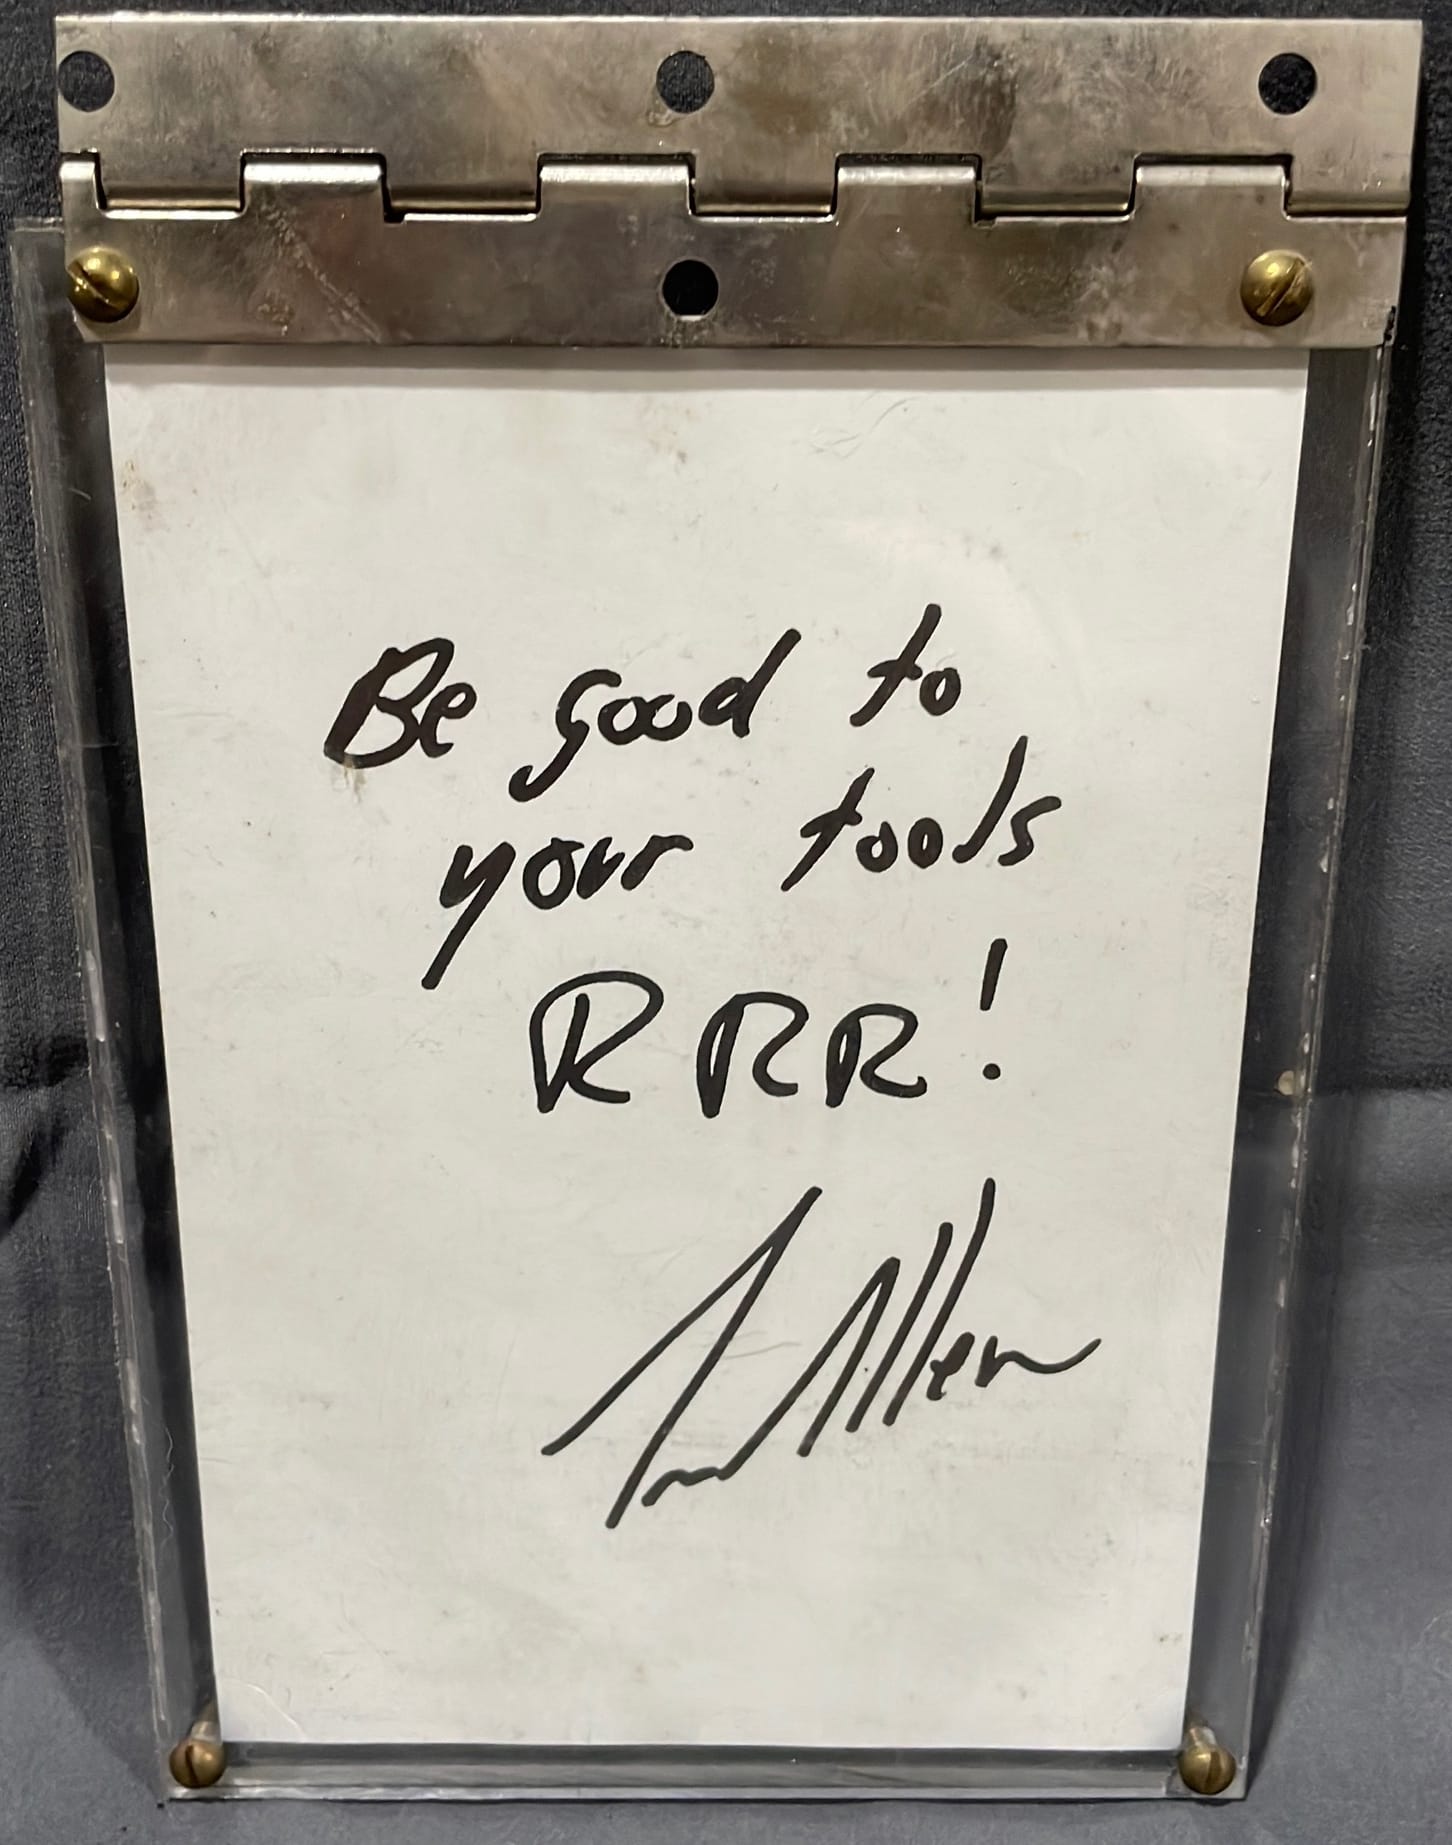 Be good to
your tools
RRR!
Tim Allen